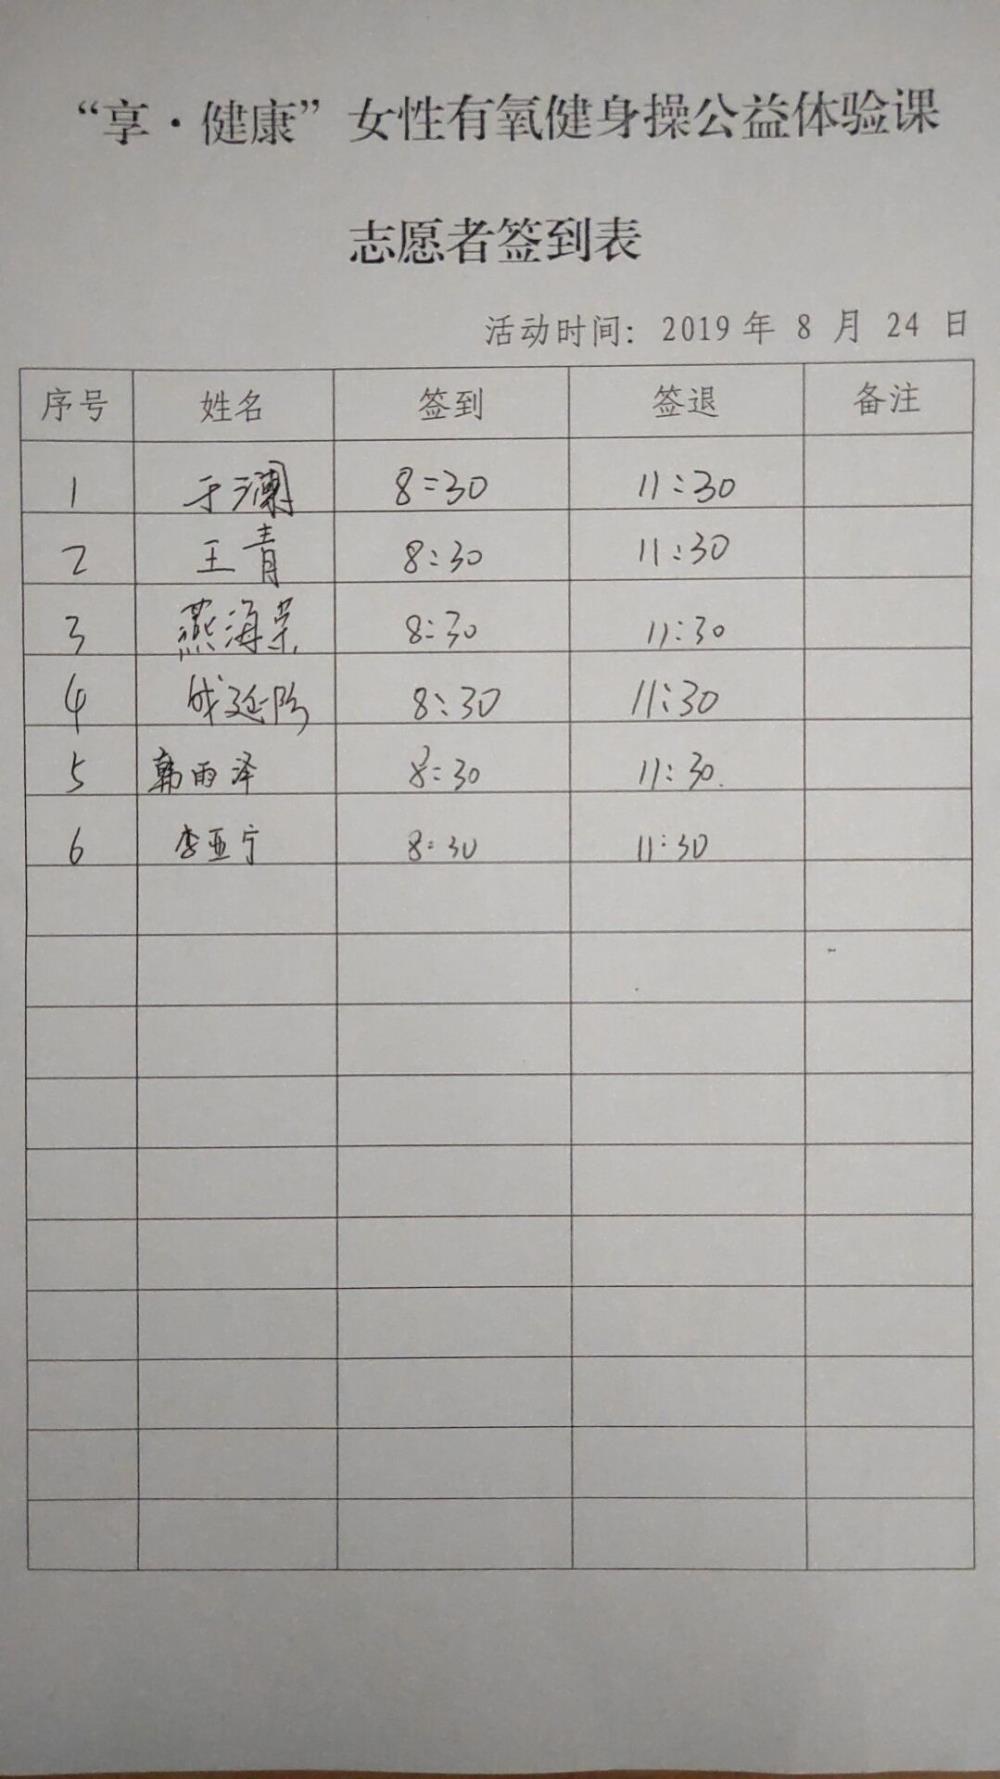 “享·健康”女性有氧健身操公益体验课
志愿者签到表
活动时间：2019年 8 月 24 日
序号 姓名 签到 签退 备注
1 于澜 8:30 11:30
2 王青 8:30 11:30
3 燕海荣 8:30 11:30
4 8:30 11:30
5 韩雨泽 8:30 11:30
6 李亚宁 8:30 11:30